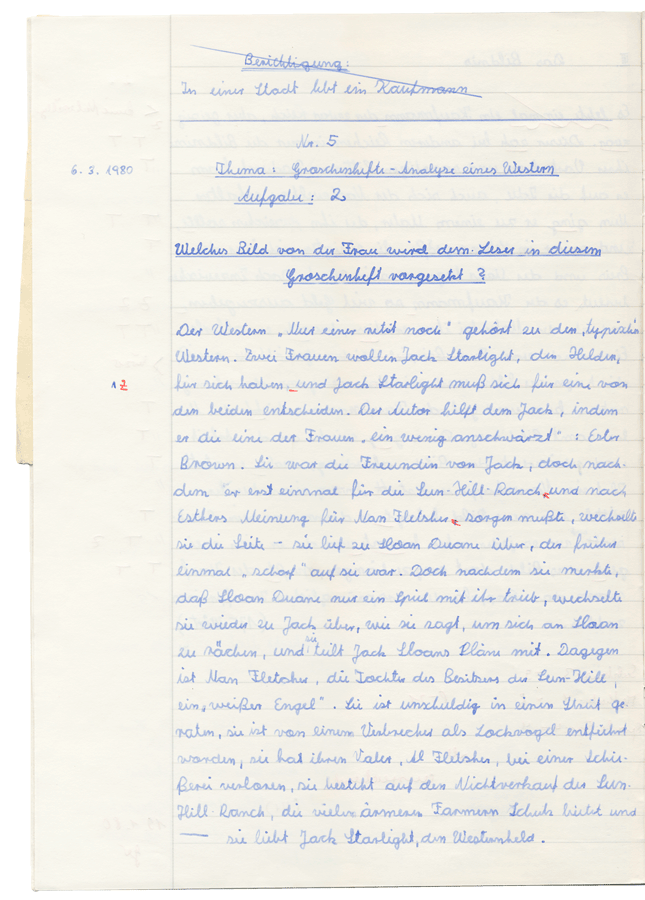 Berichtigung:
In einer Stadt lebt ein Kaufmann
Nr. 5
6. 3. 1980
Thema: Groschenhefte - Analyse eines Western
Aufgabe: 2
Welches Bild von der Frau wird dem Leser in diesem
Groschenheft vorgesetzt?
Der Western „Nur einer reitet noch" gehört zu den „typisch"
Western. Zwei Frauen wollen Jack Starlight, den Helden,
1 Z
für sich haben, und Jack Starlight muß sich für eine von
den beiden entscheiden. Der Autor hilft dem Jack, indem
er die eine der Frauen „ein wenig anschwärzt": Ester
Brown. Sie war die Freundin von Jack, doch nach-
dem er erst einmal für die Sun-Hill-Ranch und nach
Esthers Meinung für Nan Fletsher sorgen mußte, wechselte
sie die Seite - sie lief zu Sloan Duane über, der früher
einmal „scharf" auf sie war. Doch nachdem sie merkte,
daß Sloan Duane nur ein Spiel mit ihr trieb, wechselte
sie wieder zu Jack über, wie sie sagt, um sich an Sloan
zu rächen, und sie teilt Jack Sloans Pläne mit. Dagegen
ist Nan Fletcher, die Tochter des Besitzers der Sun-Hill,
ein „weißer Engel". Sie ist unschuldig in einen Streit ge-
raten, sie ist von einem Verbrecher als Lockvogel entführt
worden, sie hat ihren Vater, Al Fletsher, bei einer Schie-
ßerei verloren, sie besteht auf den Nichtverkauf der Sun-
Hill-Ranch, die vielen ärmeren Farmern Schutz bietet und
— sie liebt Jack Starlight, den Westernheld.